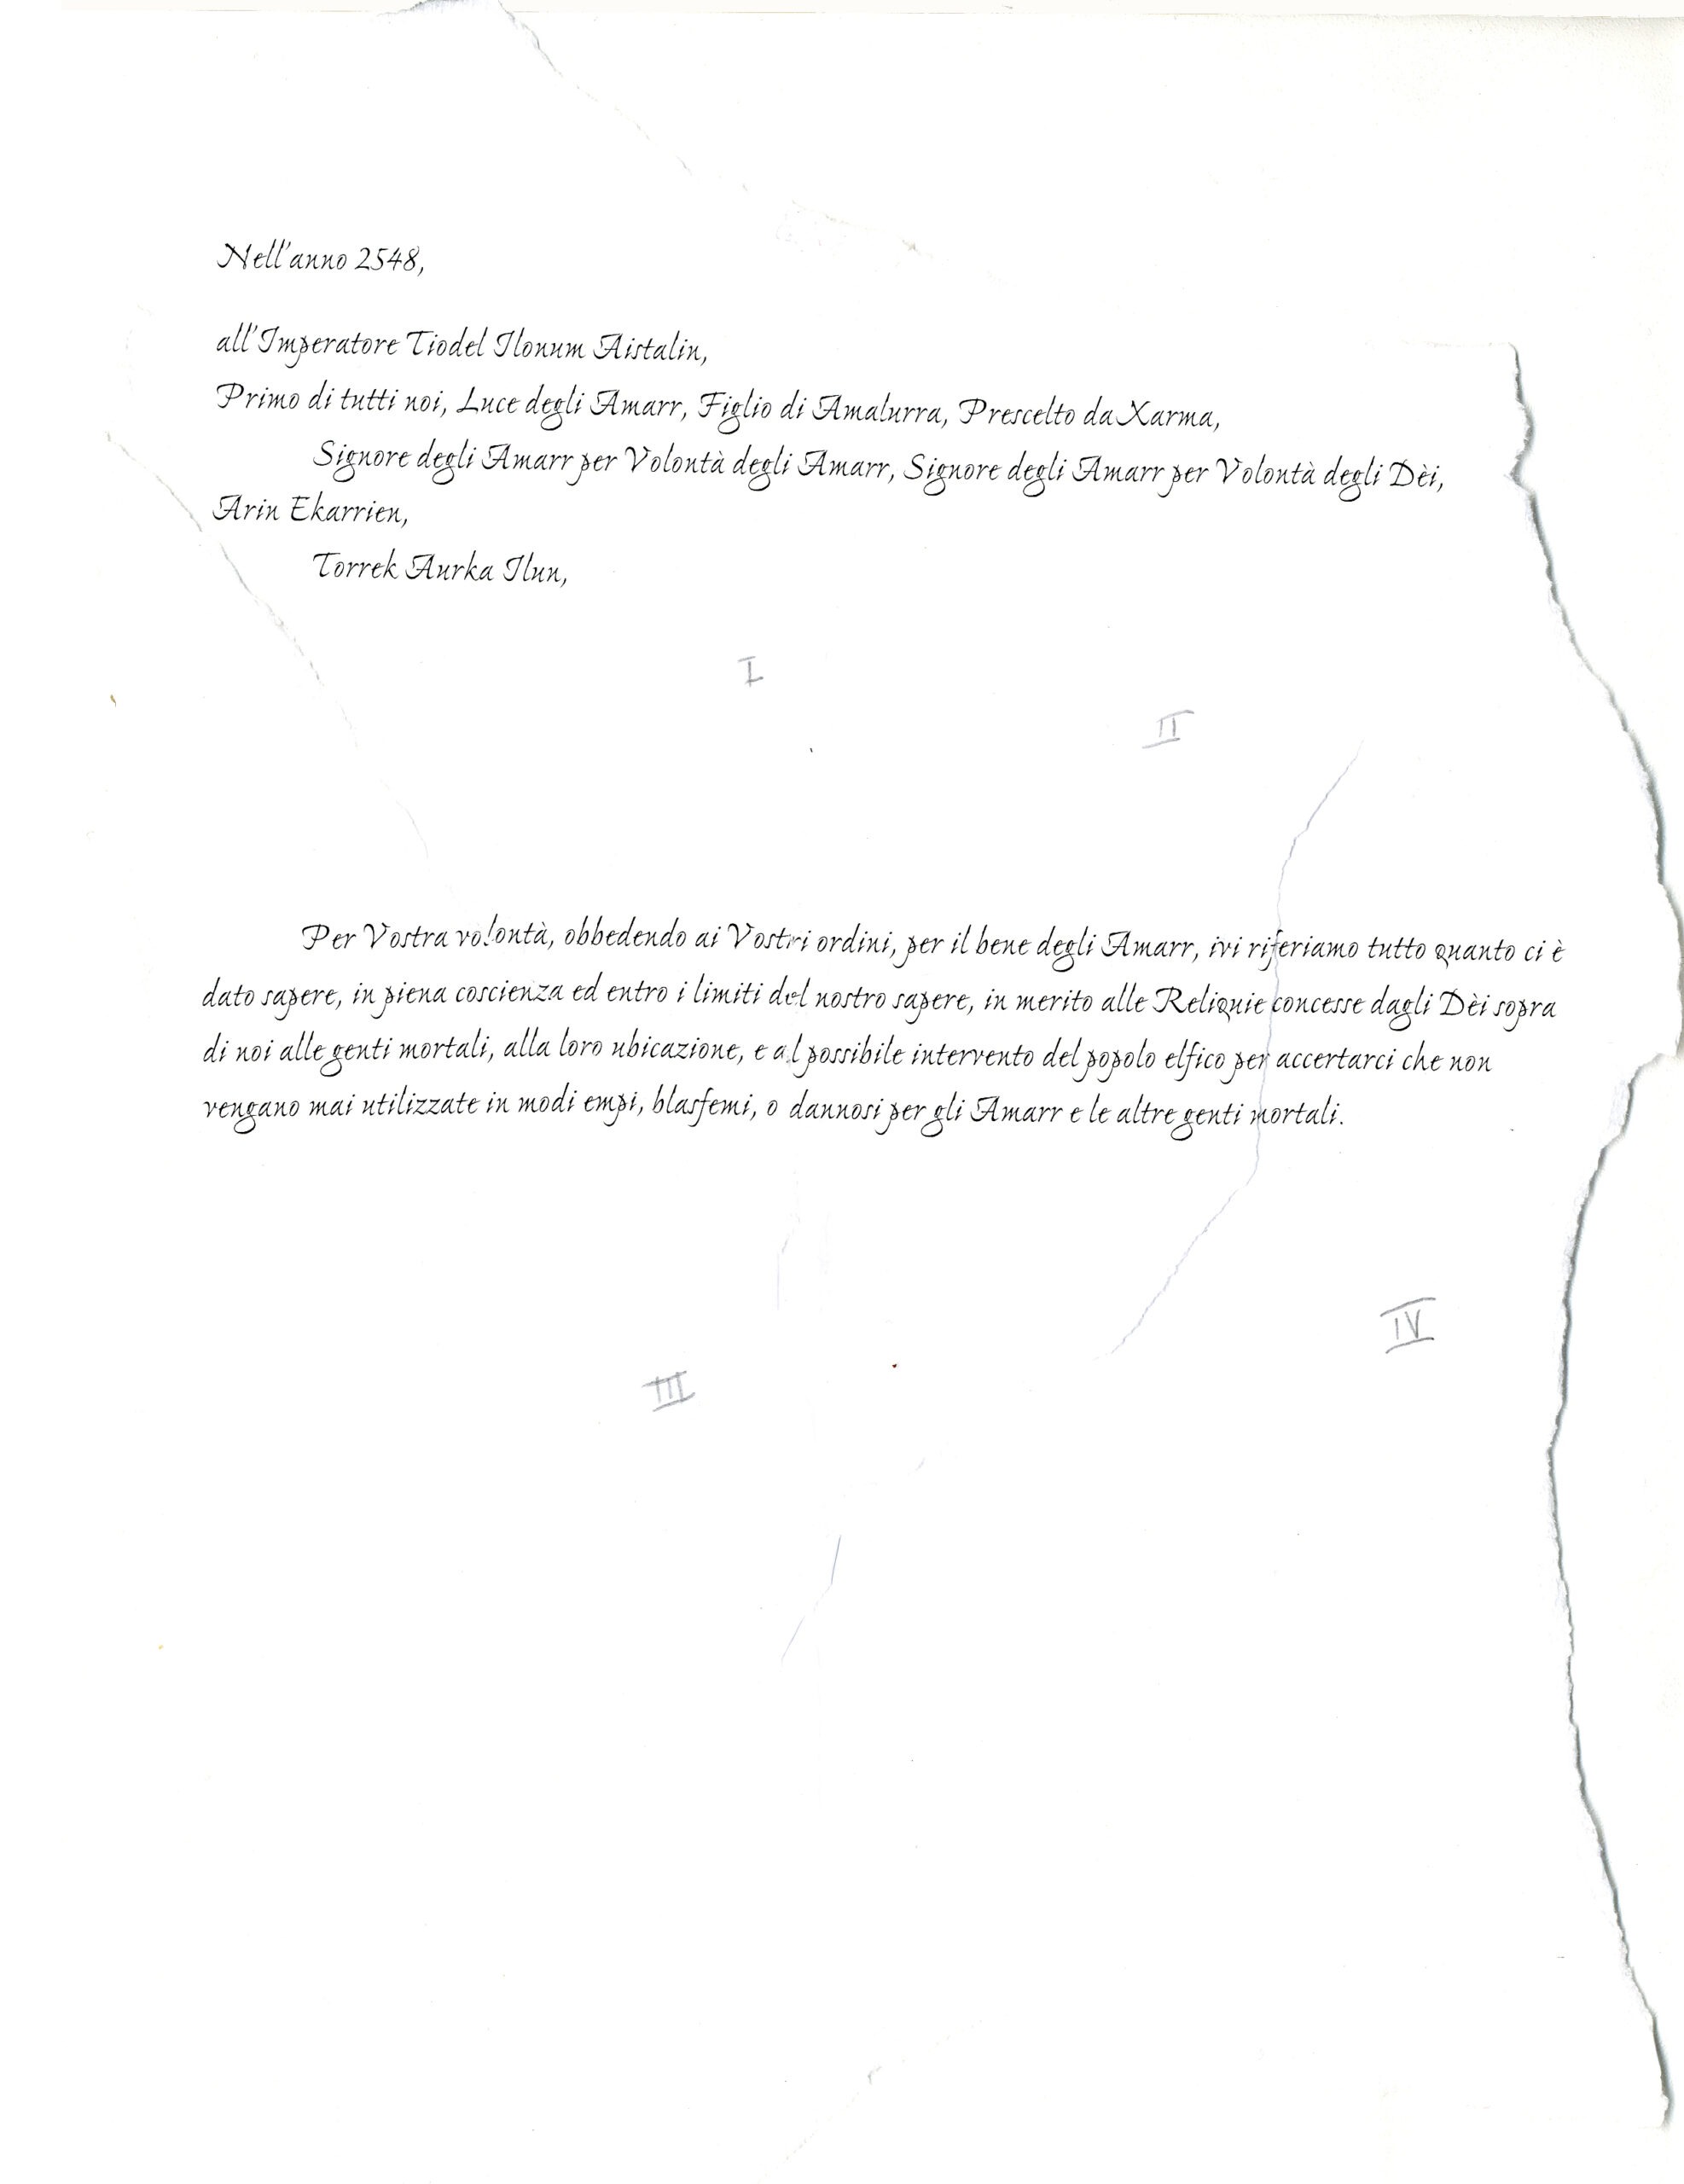 Nell'anno 2548,
all'Imperatore Tiodel Ilonum Aistalin,
Primo di tutti noi, Luce degli Amarr, Figlio di Amalurra, Prescelto da Xarma,
Signore degli Amarr per Volontà degli Amarr, Signore degli Amarr per Volontà degli Dèi,
Arin Ekarrien,
Torrek Aurka Ilun,
I
II
Per Vostra volontà, obbedendo ai Vostri ordini, per il bene degli Amarr, ivi riferiamo tutto quanto ci è
dato sapere, in piena coscienza ed entro i limiti del nostro sapere, in merito alle Reliquie concesse dagli Dèi sopra
di noi alle genti mortali, alla loro ubicazione, e al possibile intervento del popolo elfico per accertarci che non
vengano mai utilizzate in modi empi, blasfemi, o dannosi per gli Amarr e le altre genti mortali.
IV
III